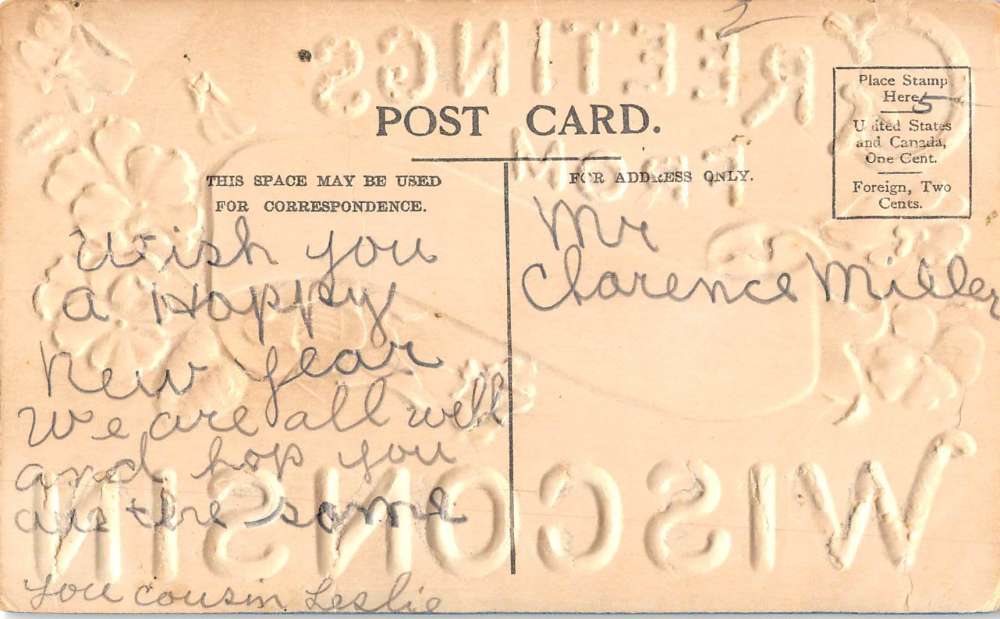 GREETINGS
FROM
WISCONSIN
POST CARD.
THIS SPACE MAY BE USED
FOR CORRESPONDENCE.
Wish you
a Happy
New year
We are all well
and hop you
are the same
you cousin Leslie
FOR ADDRESS ONLY.
Mr
Clarence Miller
Place Stamp
Here
5
United States
and Canada,
One Cent.
Foreign, Two
Cents.